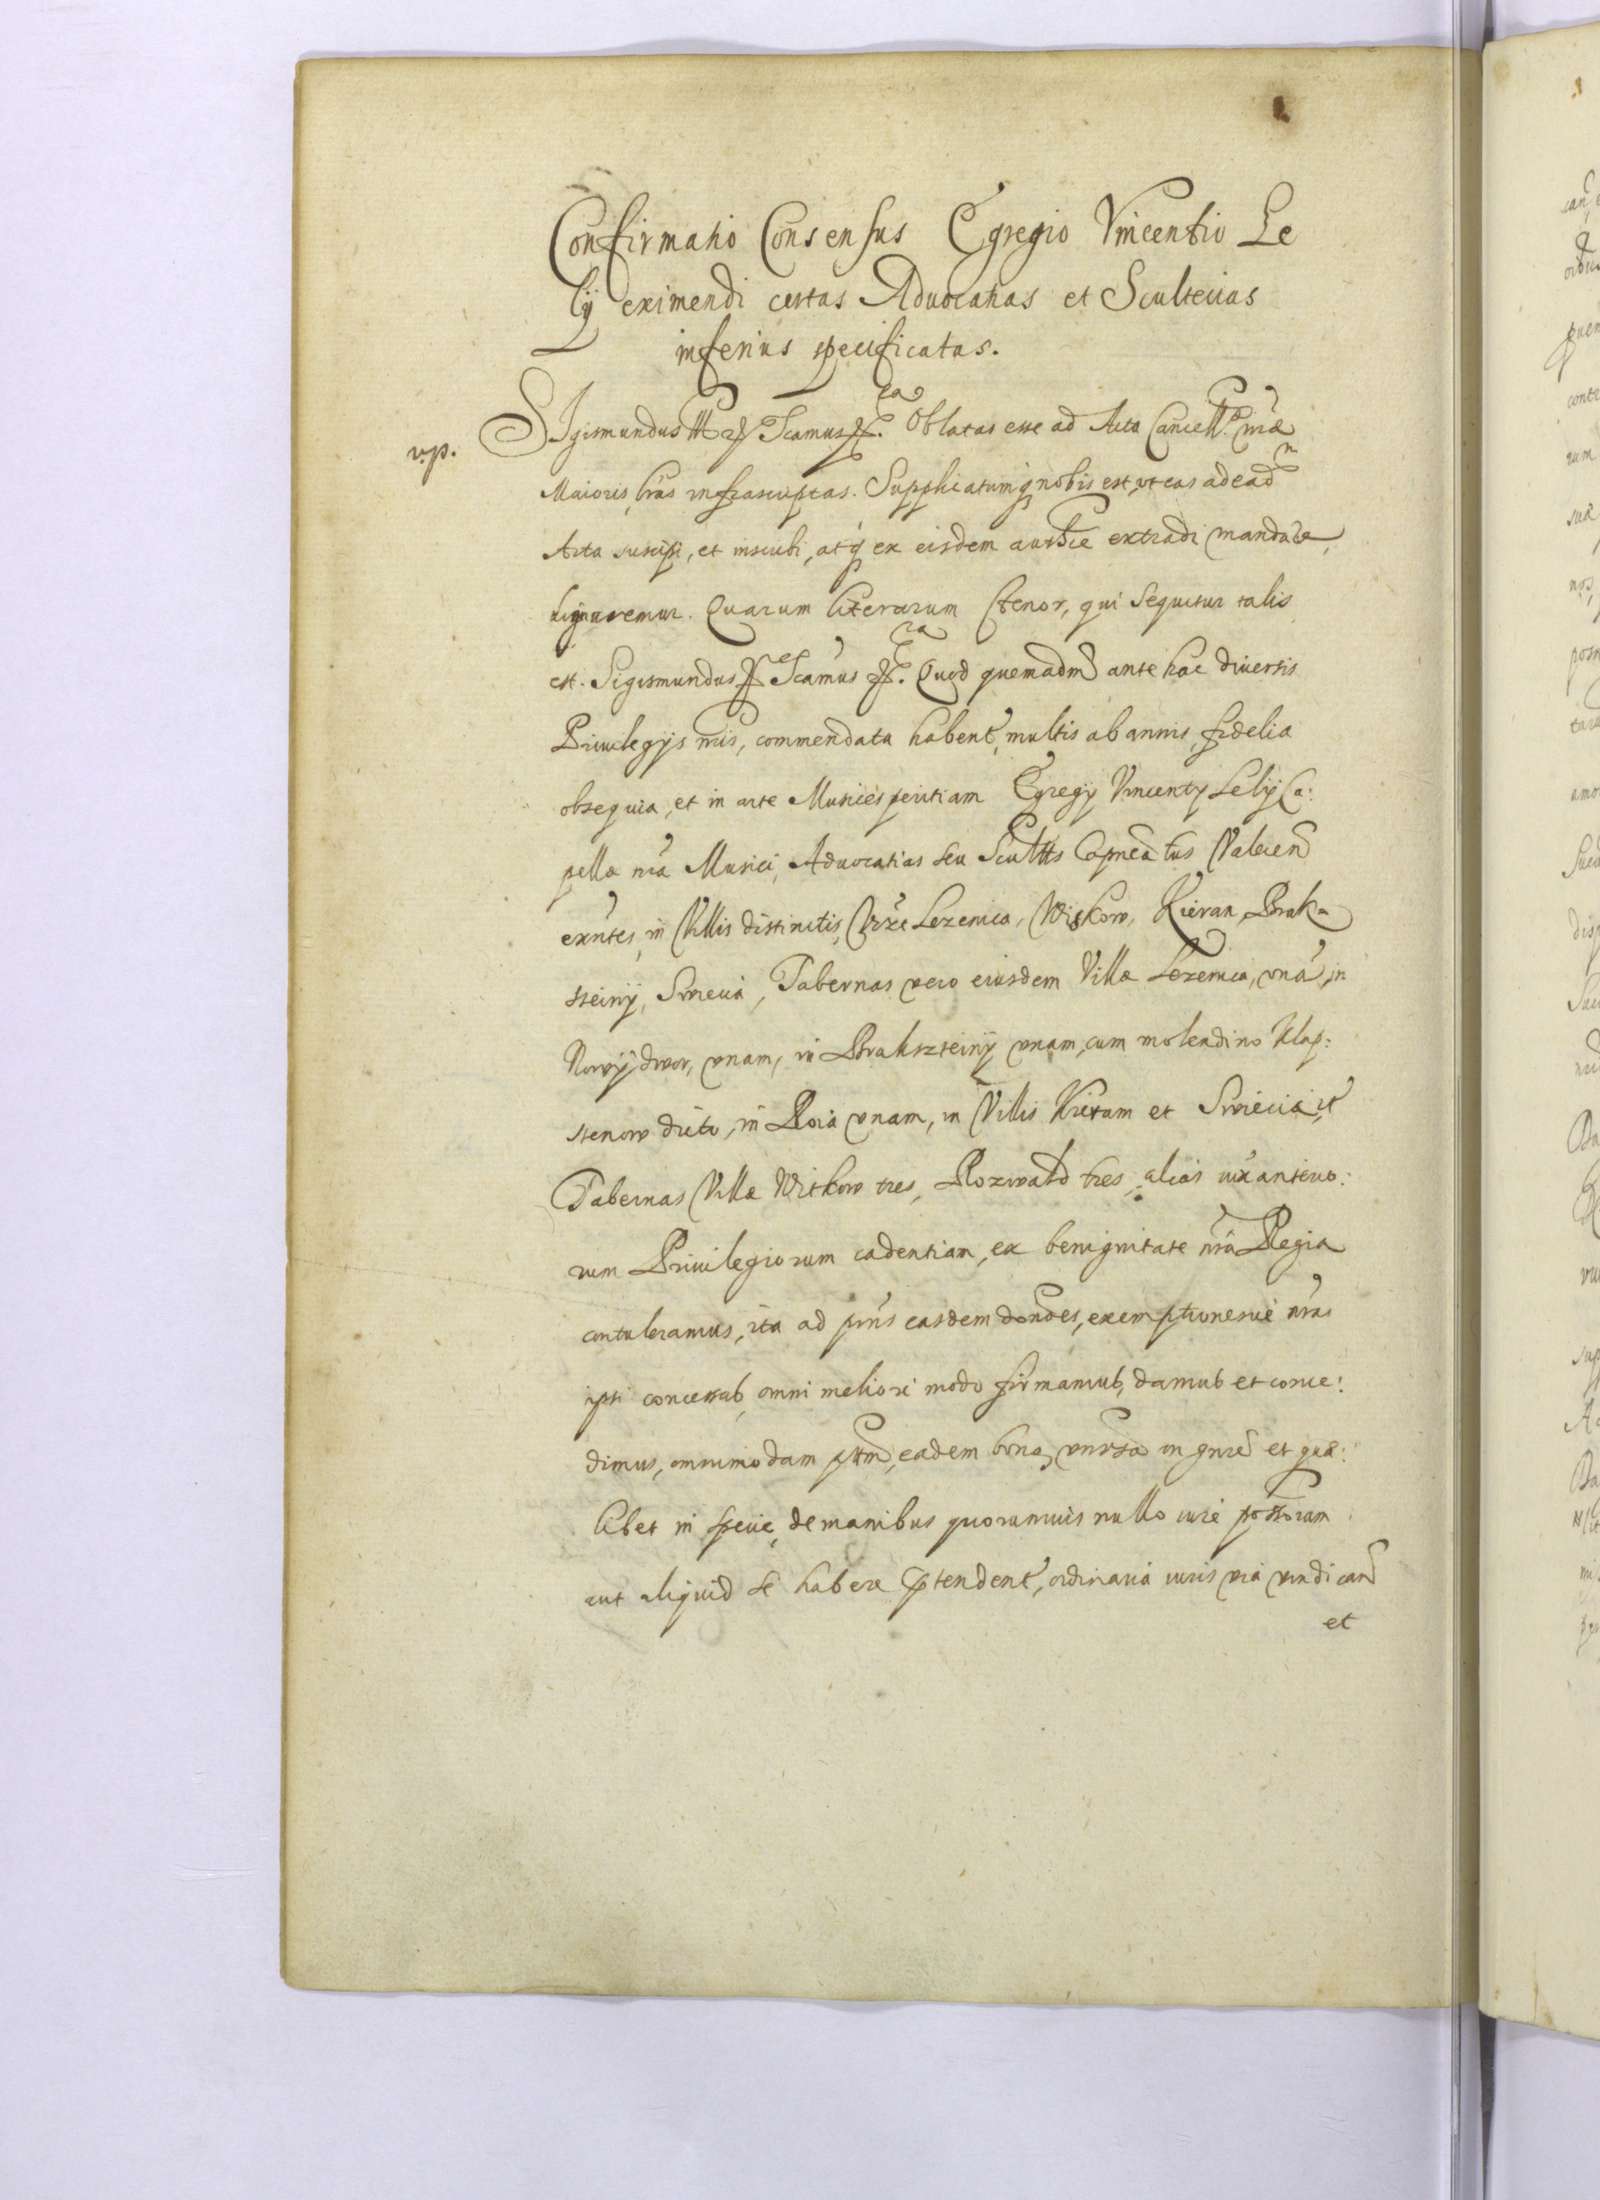 Confirmatio Consensus Egregio Vincentio Le
lij eximendi certas Advocatias et Scultetias
inferius specificatas.
v.p.
SIgismundus III Scamus Oblatas esse ad Acta Cancell. nrae
Maioris, lras infrascriptas. Supplicatumq nobis est, vt eas ad ead
Acta suscipi, et inscribi, atq ex eisdem authce extradi mandare
dignaremur. Quarum literarum tenor, qui sequitur talis
est. Sigismundus Scamus Quod quemadm ante hac diuersis
Priuilegijs nris, commendata habent, multis ab annis, fidelia
obsequia, et in arte Musices peritiam Egregij Vincentij Lelij Ca:
pellae nra Musici, Aduocatias seu Scultts Capnea tus
exntes, in Villis distinctis, Vize Lezenica, Witkow, Kieran, Brak-
steiny, Swiecia, Tabernas vero eiusdem Villae Lezenica, vna, in
Nowydwor, vnam, in Brakszteiny vnam, cum molendino Klap:
stenow dicto, in Roia vnam, in Villis Kieran et Swiecia, it
Tabernas Villae Witkow tres, Rozwald tres, alias iuxa anterio:
rum Priuilegiorum cadentiam, ex benignitate nra Regia
contuleramus, ita ad prns easdem dondes, exemptionesue nras
ipsi concessas, omni meliori modo firmamus, damus et conce:
dimus, omnimodam pttm, eadem bona, vnrsa in gnre et quae:
libet in specie, de manibus quorumuis nullo iure possoram
aut aliquid se habere ptendent, ordinaria iuris via vindican
et